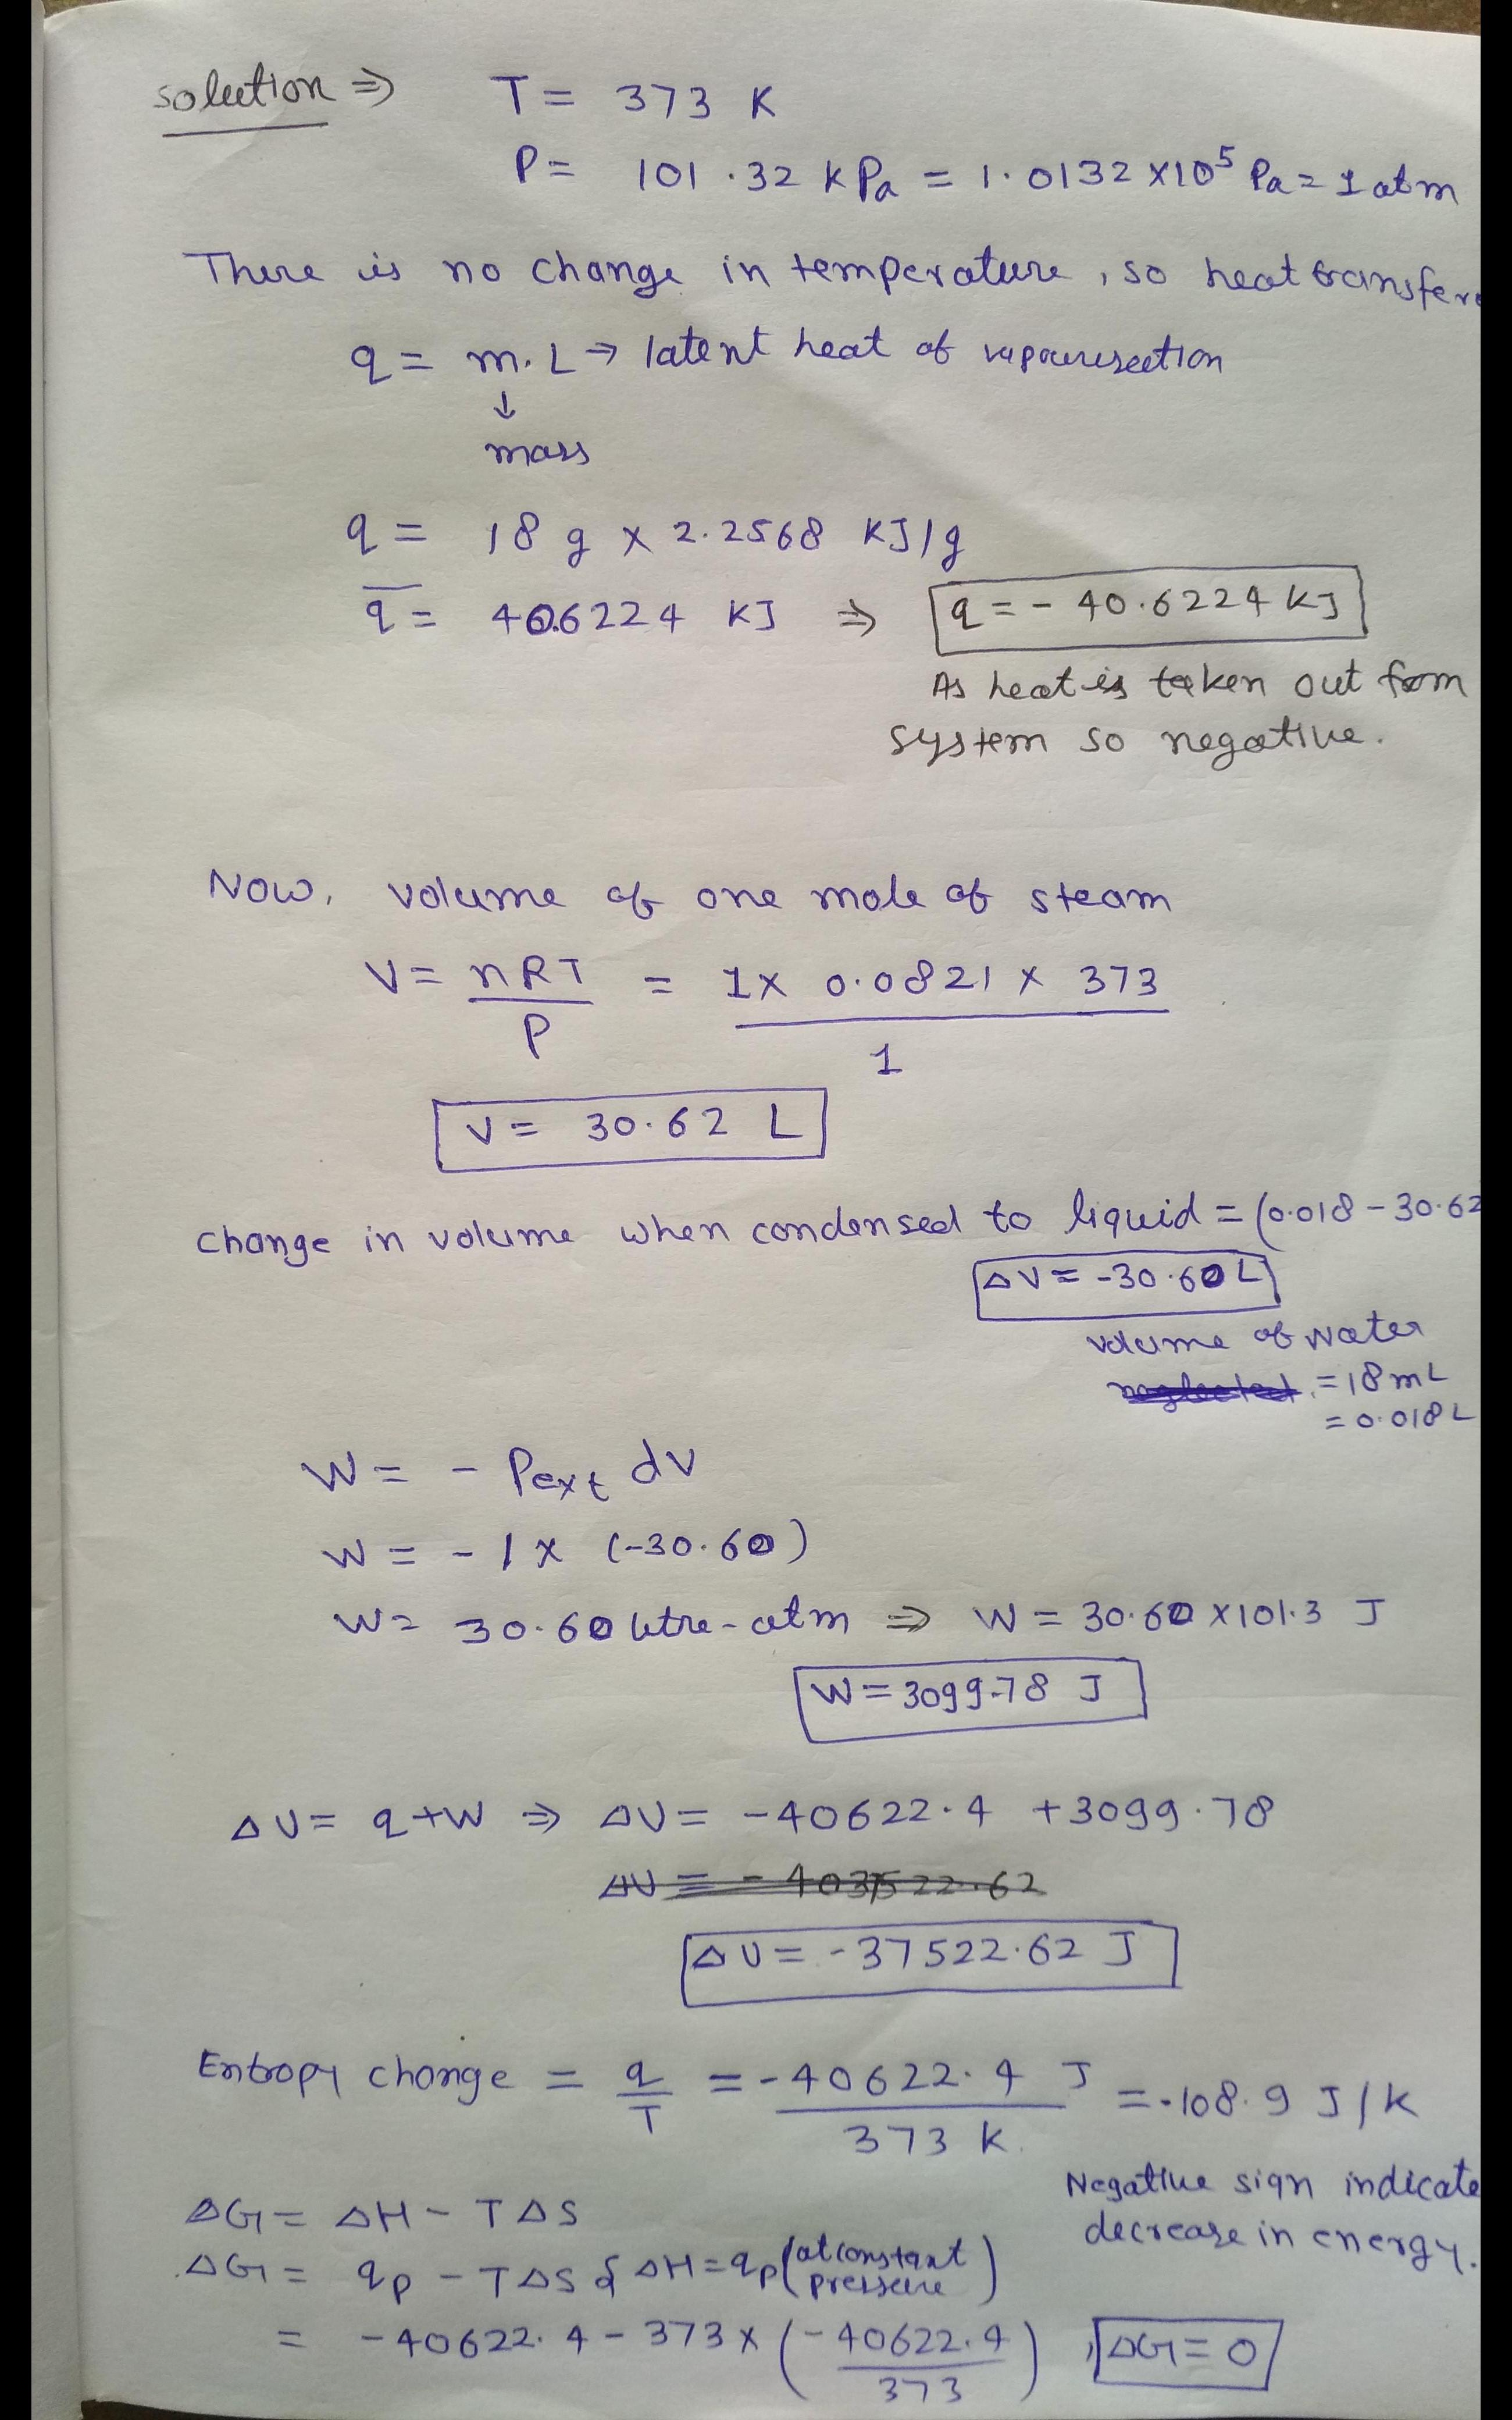 solution ⇒ T = 373 K
P = 101.32 KPa = 1.0132 ×10⁵ Pa = 1 atm
There is no change in temperature, so heat transfere
q = m. L → latent heat of vapourisation
↓
mass
q = 18 g × 2.2568 KJ/g
q = 40.6224 KJ ⇒ q = - 40.6224 KJ
As heat is taken out from
system so negative.
Now, volume of one mole of steam
V = nRT/P = 1 × 0.0821 × 373/1
V = 30.62 L
change in volume when condensed to liquid = (0.018 - 30.62
ΔV = -30.60 L
volume of water
= 18 mL
= 0.018 L
W = - Pext dV
W = - 1 × (-30.60)
W = 30.60 litre-atm ⇒ W = 30.60 ×101.3 J
W = 3099.78 J
ΔU = q + W ⇒ ΔU = -40622.4 + 3099.78
ΔU = -37522.62 J
Entropy change = q/T = -40622.4 J/373 K = -108.9 J/K
Negative sign indicate
decrease in energy.
ΔG = ΔH - TΔS
ΔG = qp - TΔS { ΔH = qp (at constant pressure)
= -40622.4 - 373 × (-40622.4/373), ΔG = 0